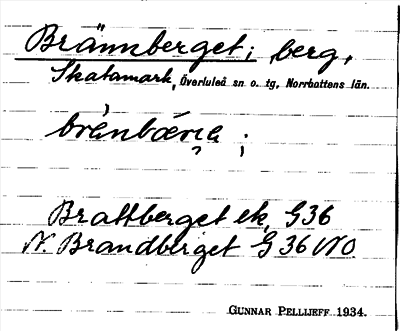 Brännberget; berg,
Skatamark, Överluleå sn o. tg, Norrbottens län.
Brattberget ek, G36
N. Brandberget G 36 NO
GUNNAR PELLIJEFF 1934.